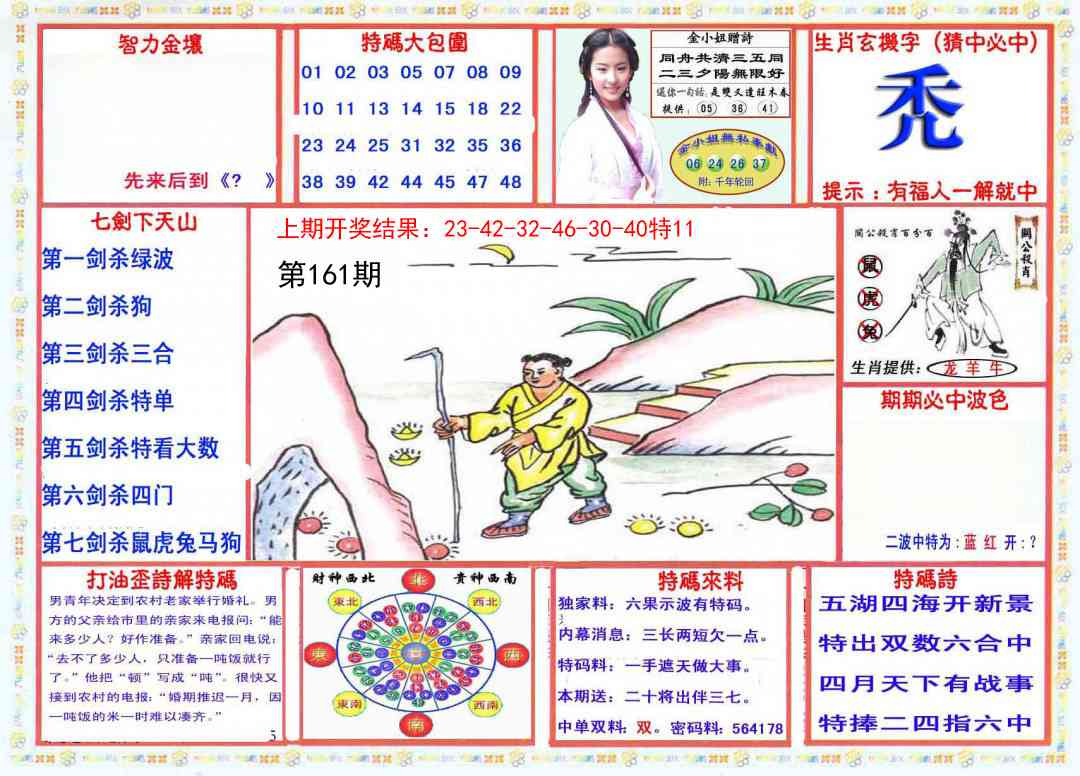 智力金壤
先来后到《? 》
特碼大包圍
01 02 03 05 07 08 09
10 11 13 14 15 18 22
23 24 25 31 32 35 36
38 39 42 44 45 47 48
金小姐赠詩
同舟共濟三五同
二三夕陽無限好
送你一句話:是雙又逢旺木春
提供: 05 36 41
金小姐無私奉獻
06 24 26 37
附:千年轮回
生肖玄機字(猜中必中)
禿
提示:有福人一解就中
七劍下天山
第一剑杀绿波
第二剑杀狗
第三剑杀三合
第四剑杀特单
第五剑杀特看大数
第六剑杀四门
第七剑杀鼠虎兔马狗
上期开奖结果:23-42-32-46-30-40特11
第161期
關公殺肖百分百
關公殺肖
鼠
虎
兔
生肖提供: 龙 羊 牛
期期必中波色
二波中特为:蓝 红 开:?
打油歪詩解特碼
男青年决定到农村老家举行婚礼。男
方的父亲给市里的亲家来电报问:“能
来多少人?好作准备。”亲家回电说:
“去不了多少人,只准备一吨饭就行
了。”他把“顿”写成“吨”。很快又
接到农村的电报:“婚期推迟一月,因
一吨饭的米一时难以凑齐。”
5
財神西北
貴神西南
北
東北
西北
東
西
東南
西南
南
特碼來料
独家料:六果示波有特码。
内幕消息:三长两短欠一点。
特码料:一手遮天做大事。
本期送:二十将出伴三七。
中单双料:双。密码料:564178
特碼詩
五湖四海开新景
特出双数六合中
四月天下有战事
特捧二四指六中